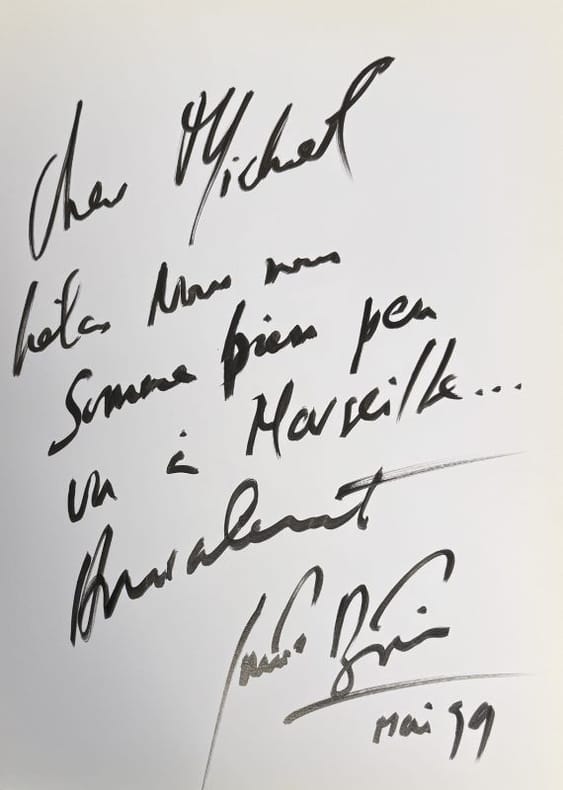 Cher Michel
hélas Nous nous
Somme bien peu
vu à Marseille...
Amicalement
Mai 99